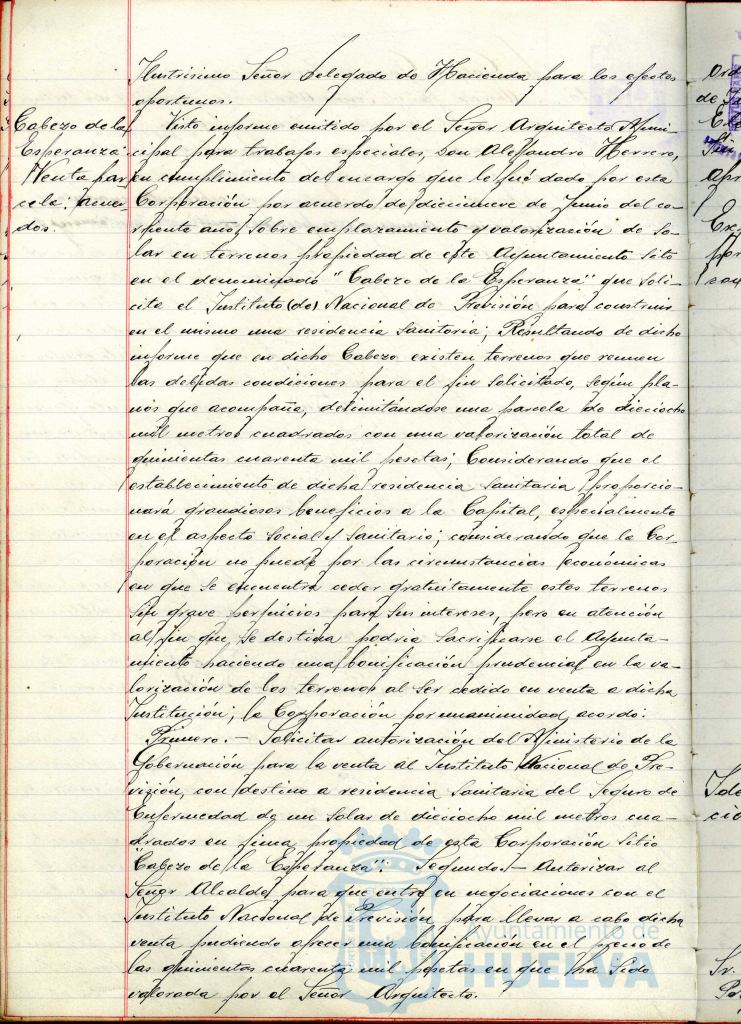 Ilustrisimo Señor Delegado de Hacienda para los efectos
oportunos.
Cabezo de la
Esperanza
Venta par-
cela: acuer-
dos.
Visto informe emitido por el Señor Arquitecto Muni-
cipal para trabajos especiales, Don Alejandro Herrero,
en cumplimiento del encargo que le fué dado por esta
Corporación por acuerdo de diecinueve de Junio del co-
rriente año, sobre emplazamiento y valorización de so-
lar en terrenos propiedad de este Ayuntamiento sito
en el denominado "Cabezo de la Esperanza" que soli-
cita el Instituto (de) Nacional de Previsión para construir
en el mismo una residencia sanitaria; Resultando de dicho
informe que en dicho Cabezo existen terrenos que reunen
las debidas condiciones para el fin solicitado, según pla-
nos que acompaña, delimitándose una parcela de dieciocho
mil metros cuadrados con una valorización total de
quinientas cuarenta mil pesetas; Considerando que el
establecimiento de dicha residencia sanitaria proporcio-
nará grandiosos beneficios a la Capital, especialmente
en el aspecto social y sanitario; considerando que la Cor-
poración no puede por las circunstancias económicas
en que se encuentra ceder gratuitamente estos terrenos
sin grave perjuicios para sus intereses, pero en atención
al fin que se destina podria sacrificarse el Ayunta-
miento haciendo una bonificación prudencial en la va-
lorización de los terrenos al ser cedido en venta a dicha
Institución; la Corporación por unanimidad, acordó:
Primero.- Solicitar autorización del Ministerio de la
Gobernación para la venta al Instituto Nacional de Pre-
visión, con destino a residencia sanitaria del Seguro de
Enfermedad de un solar de dieciocho mil metros cua-
drados en finca propiedad de esta Corporación sitio
"Cabezo de la Esperanza". Segundo.- Autorizar al
Señor Alcalde para que entre en negociaciones con el
Instituto Nacional de Previsión para llevar a cabo dicha
venta pudiendo ofrecer una bonificación en el precio de
las quinientas cuarenta mil pesetas en que ha sido
valorada por el Señor Arquitecto.
Ayuntamiento de
HUELVA